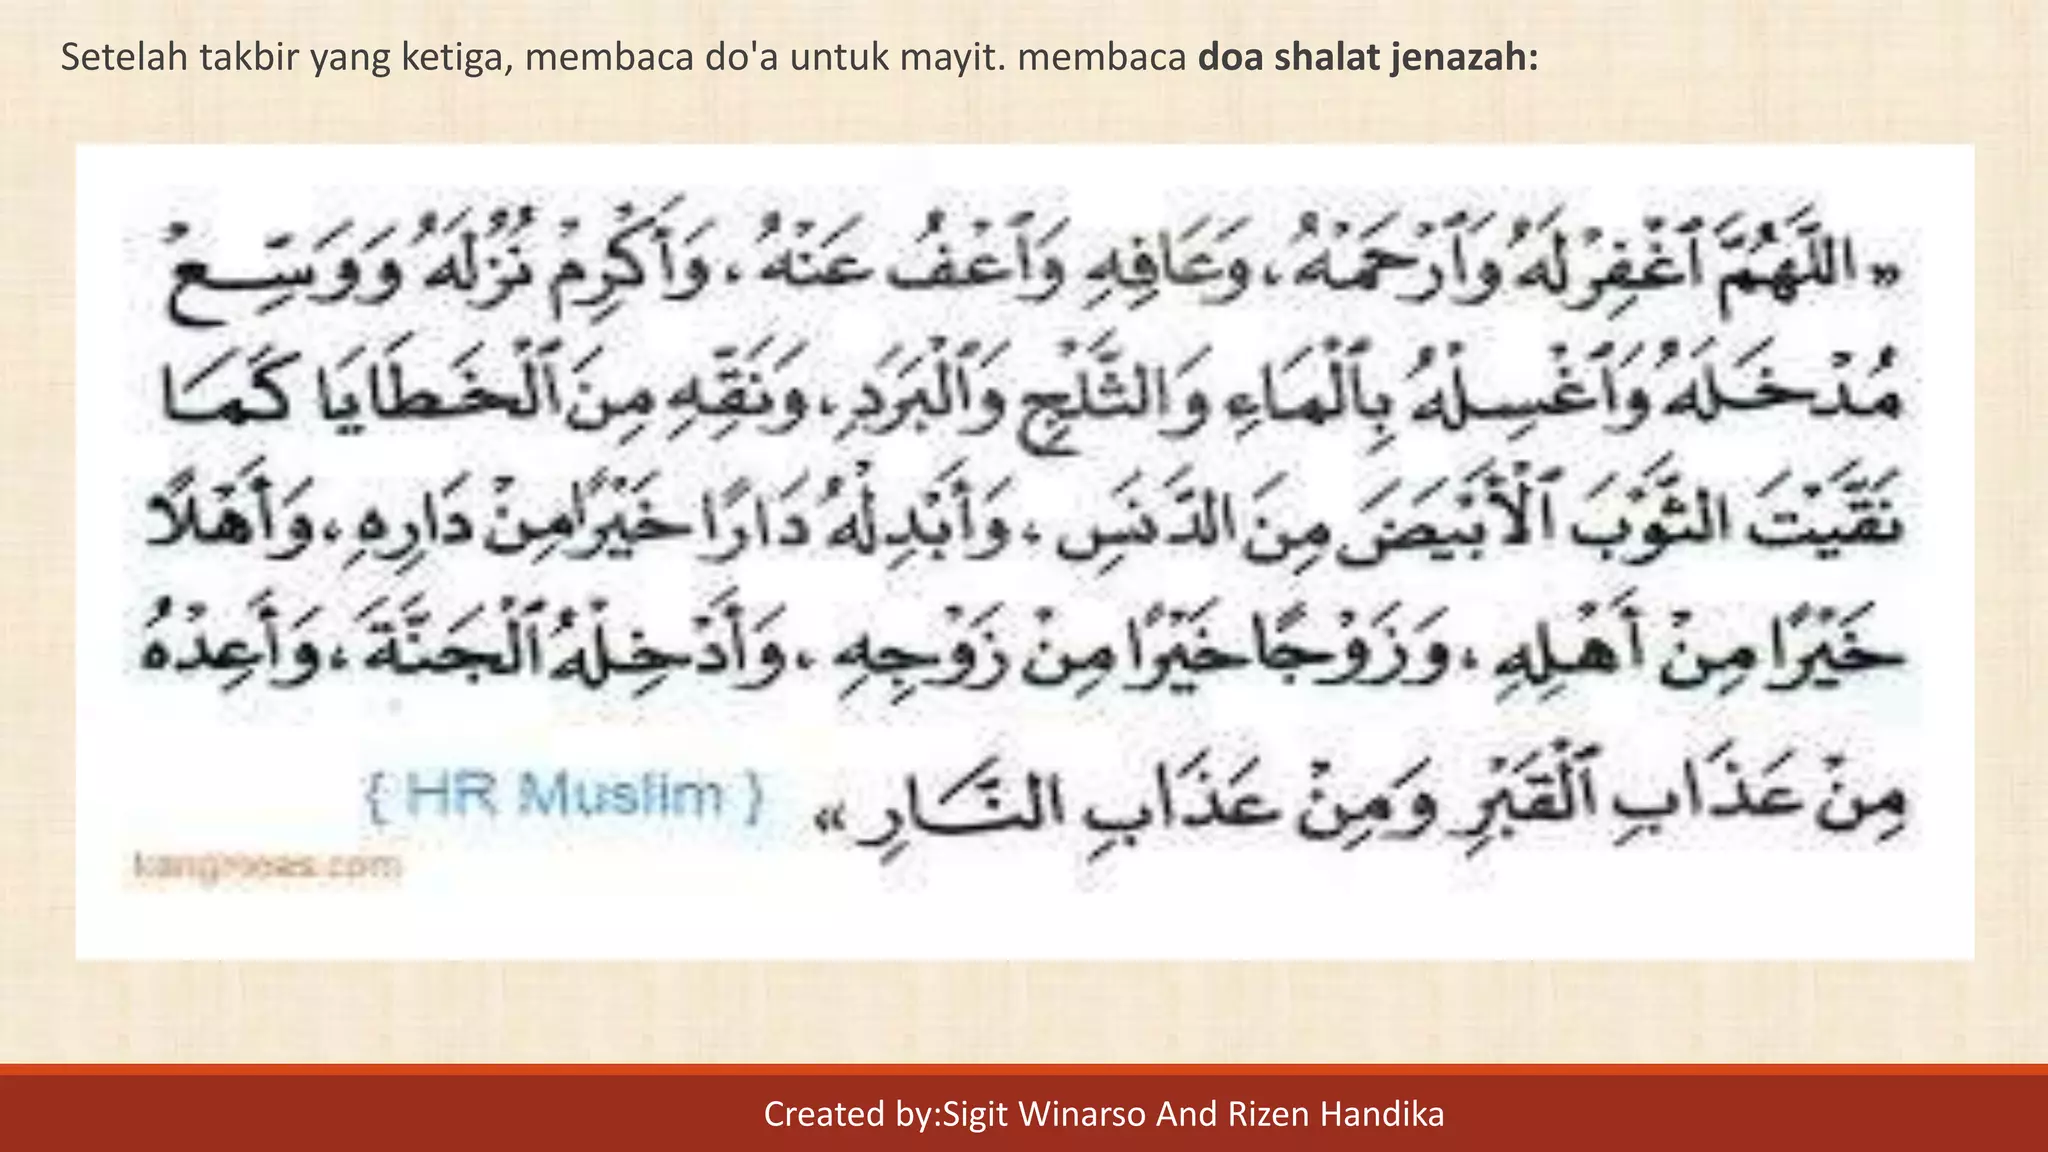 Setelah takbir yang ketiga, membaca do'a untuk mayit. membaca doa shalat jenazah:
« اللَّهُمَّ ٱغْفِرْ لَهُ وَٱرْحَمْهُ، وَعَافِهِ وَٱعْفُ عَنْهُ، وَأَكْرِمْ نُزُلَهُ وَوَسِّعْ
مُدْخَلَهُ وَٱغْسِلْهُ بِٱلْمَاءِ وَالثَّلْجِ وَٱلْبَرَدِ، وَنَقِّهِ مِنَ ٱلْخَطَايَا كَمَا
نَقَّيْتَ الثَّوْبَ ٱلْأَبْيَضَ مِنَ الدَّنَسِ، وَأَبْدِلْهُ دَارًا خَيْرًا مِنْ دَارِهِ، وَأَهْلًا
خَيْرًا مِنْ أَهْلِهِ، وَزَوْجًا خَيْرًا مِنْ زَوْجِهِ، وَأَدْخِلْهُ ٱلْجَنَّةَ، وَأَعِذْهُ
مِنْ عَذَابِ ٱلْقَبْرِ وَمِنْ عَذَابِ النَّارِ »
{ HR Muslim }
Created by:Sigit Winarso And Rizen Handika